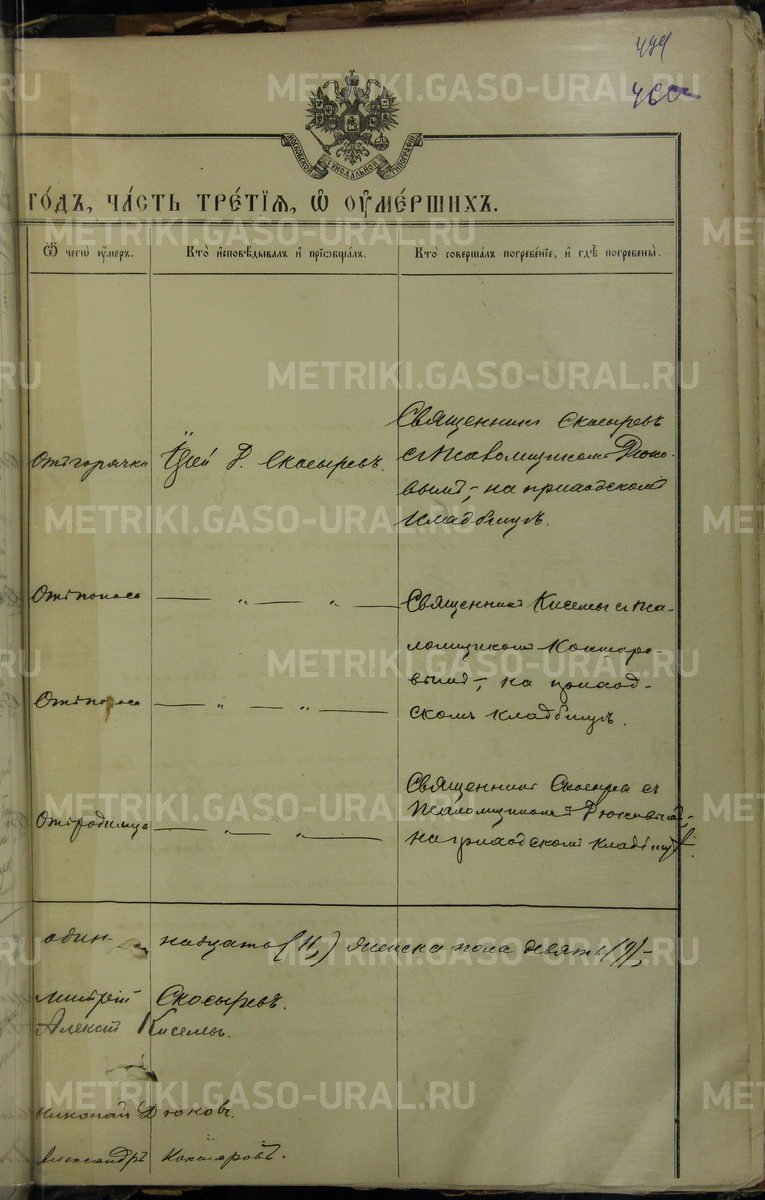 479
460
МОСКОВСКОЙ СѴНОДАЛЬНОЙ ТИПОГРАФІИ
ГОДЪ, ЧАСТЬ ТРЕТІЯ, Ѿ ОУМЕРШИХЪ.
Ѿ чегѡ оумеръ.
Кто исповѣдывалъ и пріобщалъ.
Кто совершалъ погребеніе, и гдѣ погребены.
Отъ горячки
Іерей Скосыревъ.
Священникъ Скосыревъ
съ псаломщикомъ Дюко-
вымъ, на приходскомъ
кладбищѣ.
Отъ поноса — „ — „ —
Священникъ Киселевъ съ пса-
ломщикомъ Кокшаро-
вымъ, на приход-
скомъ кладбищѣ.
Отъ поноса — „ — „ —
Священникъ Скосыревъ съ
псаломщикомъ Дюковымъ,
на приходскомъ кладбищѣ.
Отъ родимца — „ — „ —
одиннадцать (11,) женска пола девять (9),
Димитрій Скосыревъ.
Алексій Киселевъ.
Николай Дюковъ.
Александръ Кокшаровъ.
METRIKI.GASO-URAL.RU